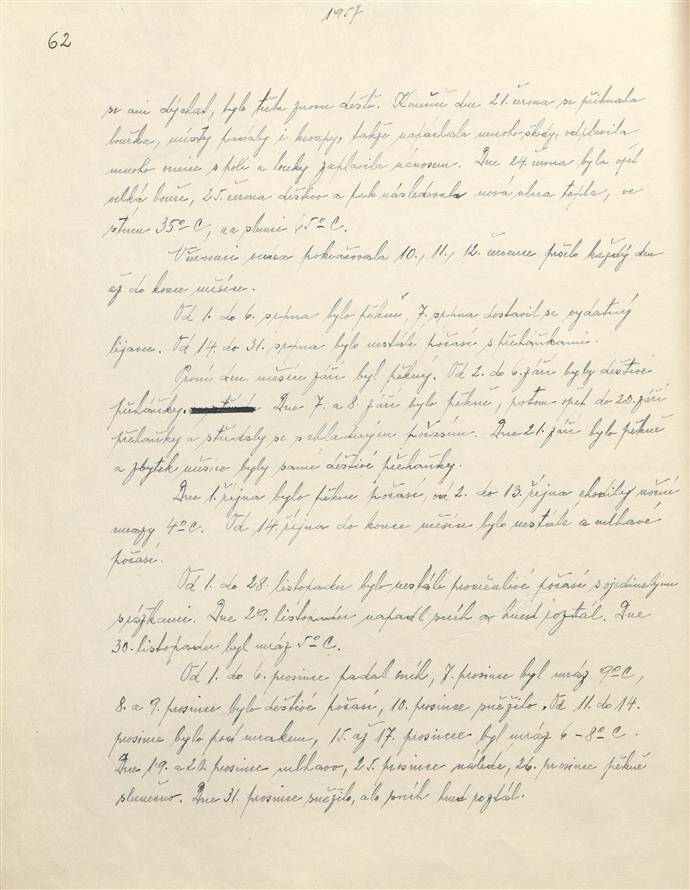 1957
62
se ani dýchat, bylo třeba znovu deště. Konečně dne 21. června se přihnala
bouřka, místy padaly i kroupy, takže napáchala mnoho škody, odplavila
mnoho ornice s polí a louky zaplavila nánosem. Dne 24. června byla opět
velká bouře, 25. června deštivo a pak následovala nová vlna tepla, ve
stínu 35° C, na slunci 45° C.
V červenci vedra pokračovala 10., 11., 12. července pršelo každý den
až do konce měsíce.
Od 1. do 6. srpna bylo pěkně, 7. srpna dostavil se vydatný
lijavec. Od 14. do 31. srpna bylo nestálé počasí s přeháňkami.
První den měsíce září byl pěkný. Od 2. do 6. září byly deštivé
přeháňky. Dne 7. a 8. září bylo pěkně, potom opět do 20. září
přeháňky a střídaly se s chladným počasím. Dne 21. září bylo pěkně
a zbytek měsíce byly samé deštivé přeháňky.
Dne 1. října bylo pěkné počasí, od 2. do 13. října chodily noční
mrazy 4° C. Od 14. října do konce měsíce bylo nestálé a mlhavé
počasí.
Od 1. do 28. listopadu bylo nestálé proměnlivé počasí s ojedinělými
srážkami. Dne 29. listopadu napadl sníh a hned roztál. Dne
30. listopadu byl mráz 5° C.
Od 1. do 6. prosince padal sníh, 7. prosince byl mráz 9° C,
8. a 9. prosince bylo deštivé počasí, 10. prosince sněžilo. Od 11. do 14.
prosince bylo pod mrakem, 15. až 17. prosince byl mráz 6 - 8° C.
Dne 19. a 20. prosince mlhavo, 25. prosince náledí, 26. prosince pěkně
slunečno. Dne 31. prosince sněžilo, ale sníh hned roztál.